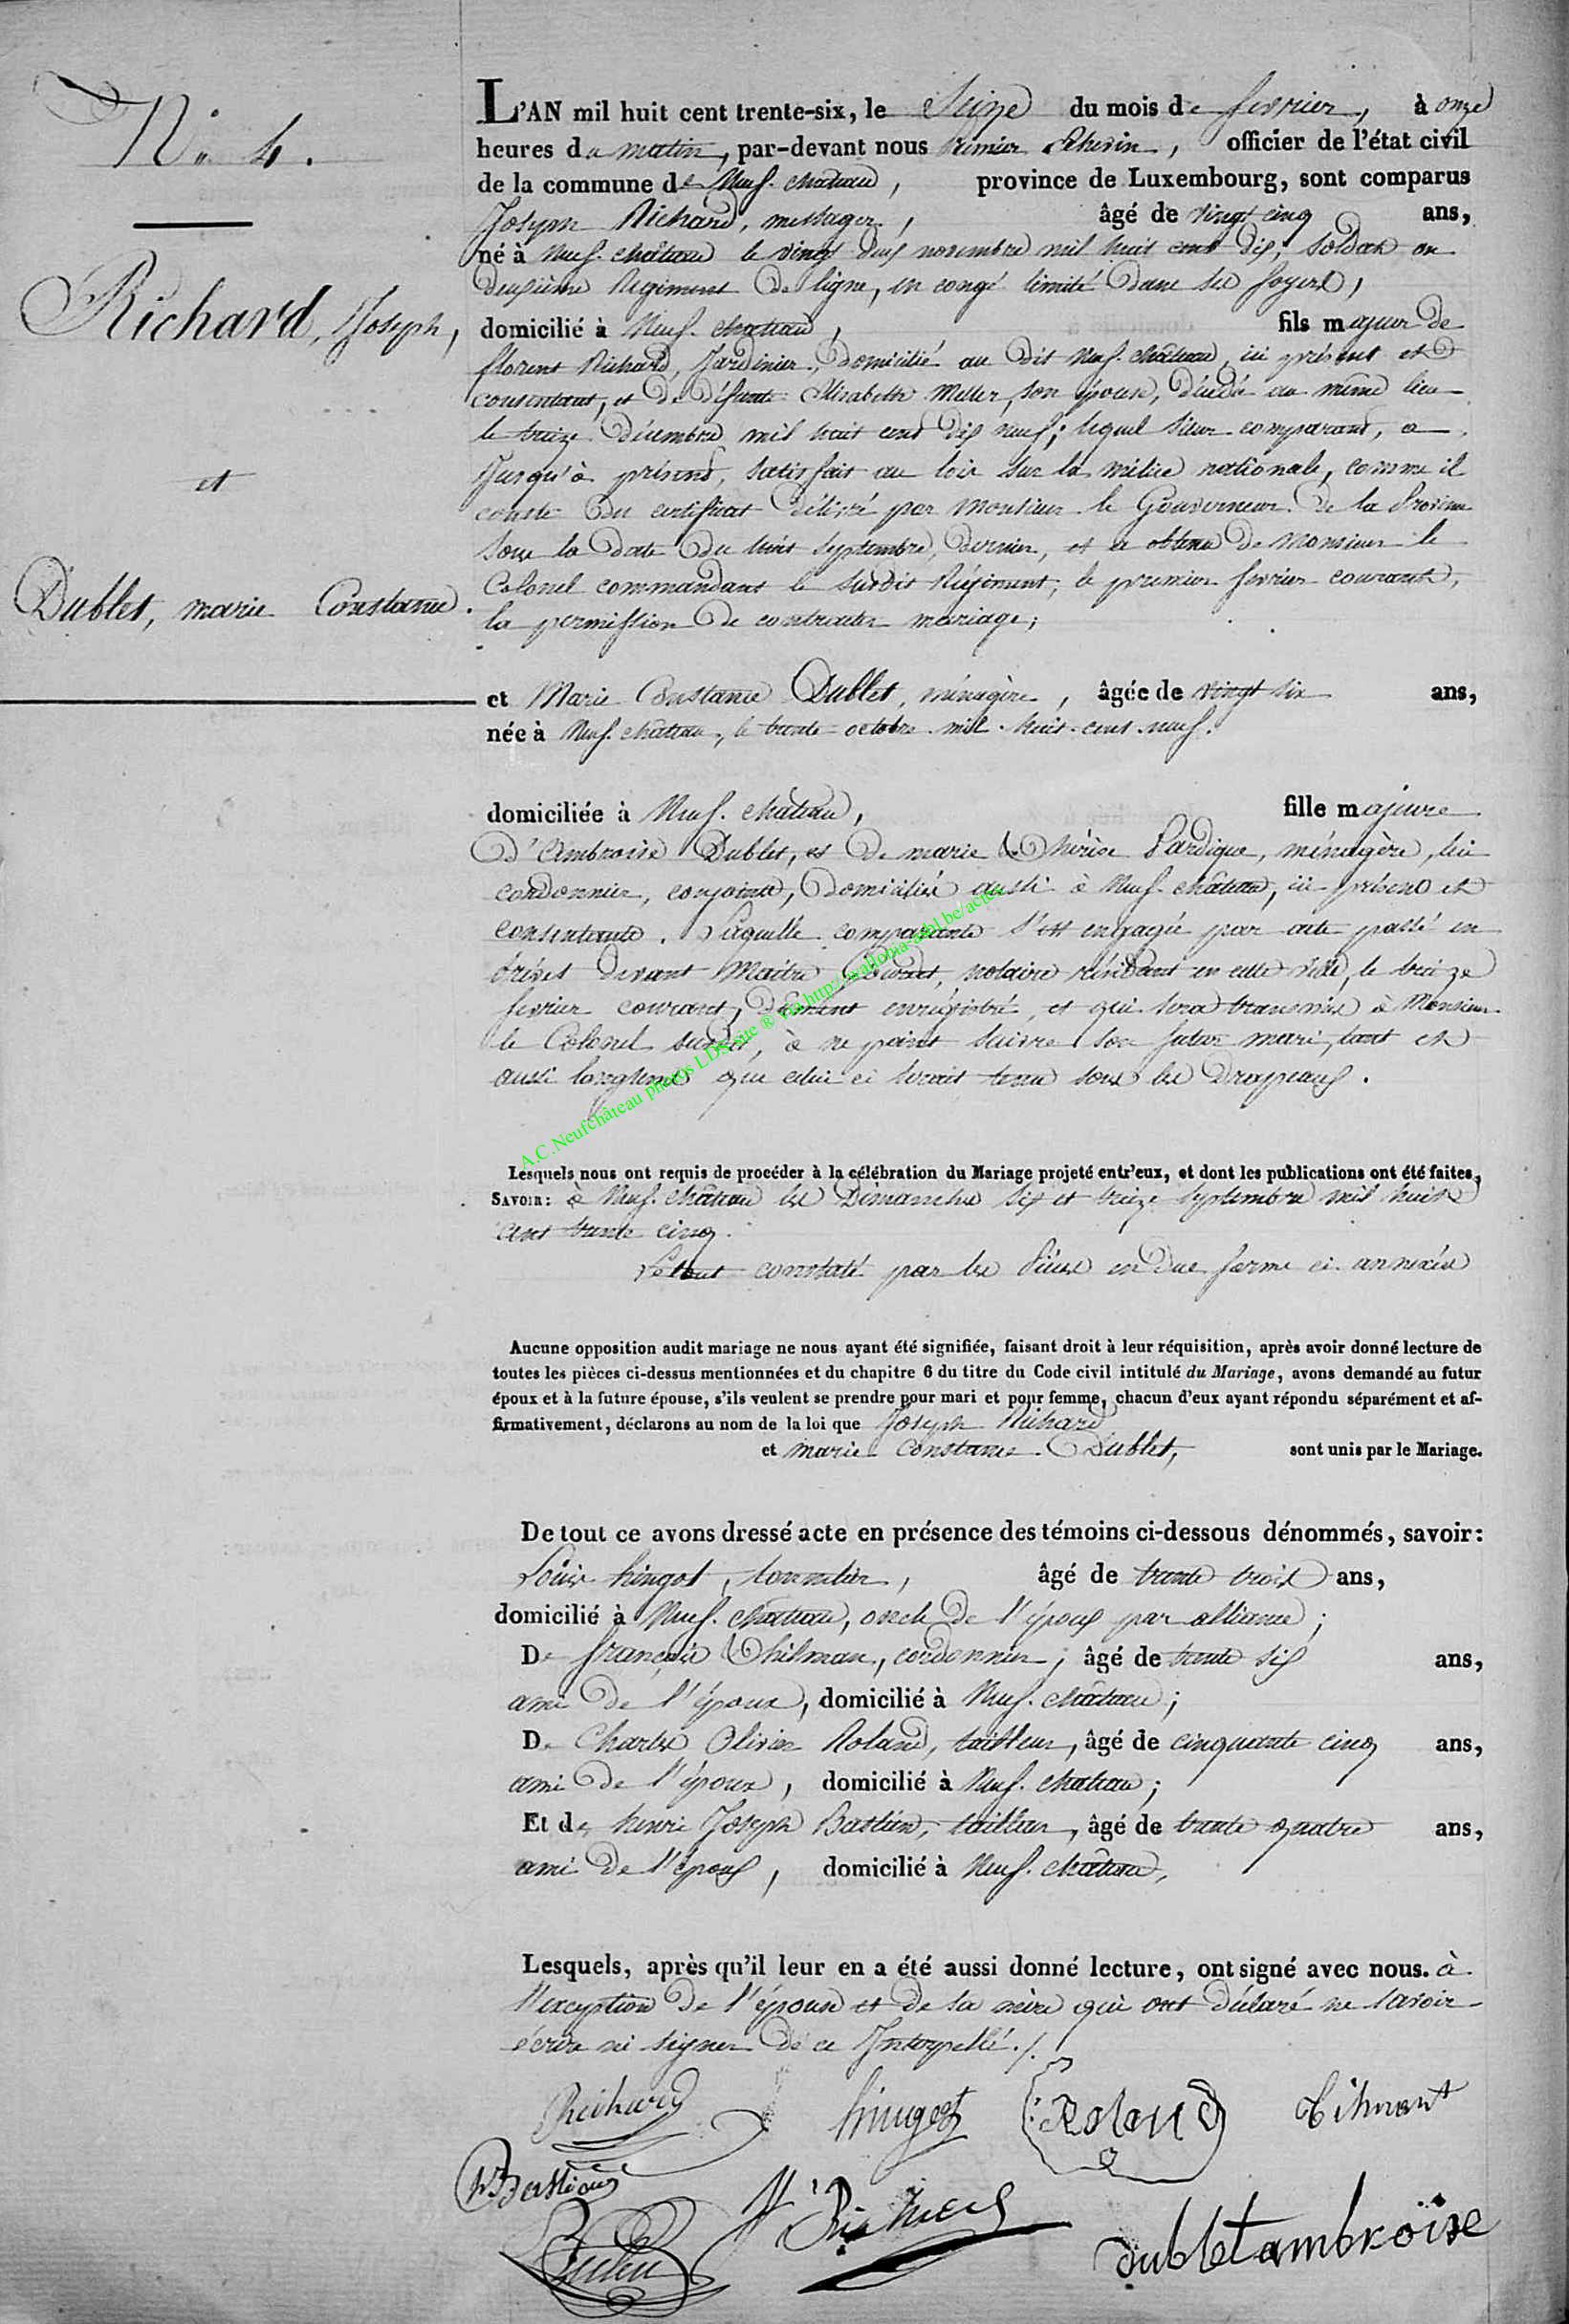 N.º 4.
Richard, Joseph,
et
Dublet, marie Constance.
L'AN mil huit cent trente-six, le Seize du mois de fevrier, à onze
heures du matin, par-devant nous premier Echevin, officier de l'état civil
de la commune de Neuf-château, province de Luxembourg, sont comparus
Joseph Richard, messager, âgé de vingt cinq ans,
né à Neuf-château le vingt deux novembre mil huit cent dix, soldat au
deuxième Regiment de ligne, en congé limité dans ses foyers,
domicilié à Neuf-chateau, fils majeur de
florent Richard, Jardinier, domicilié au dit Neuf-château, ici présent et
consentant, et de défunte Elisabeth Meller, son épouse, décédée au même lieu
le treize décembre mil huit cent dix neuf; lequel sieur comparant, a
Jusqu'à présent, satisfait au lois sur la milice nationale, comme il
conste du certificat délivré par Monsieur le Gouverneur de la Province
sous la date du huit septembre, dernier, et a obtenu de Monsieur le
Colonel commandant le susdit Régiment, le premier fevrier courant,
la permission de contracter mariage;
et Marie Constance Dublet, ménagère, âgée de vingt six ans,
née à Neuf-château, le trente octobre mil-huit-cent-neuf.
domiciliée à Neuf-château, fille majeure
d'Ambroise Dublet, et de marie Thérèse Pardique, ménagère, lui
cordonnier, conjoints, domiciliés aussi à Neuf-château, ici présens et
consentants. Laquelle comparante s'est engagée par acte passé en
brévet devant Maitre notaire résidant en cette ville, le treize
fevrier courant, dûment enrégistré, et qui sera transmis à Monsieur
le Colonel susdit, à ne point suivre son futur mari, tant et
aussi longtems que celui ci serait tenu sous les Drapeaux.
A.C.Neufchâteau photos LDS site ® via http://wallonia-asbl.be/actes
Lesquels nous ont requis de procéder à la célébration du Mariage projeté entr'eux, et dont les publications ont été faites,
SAVOIR: à Neuf-château les Dimanches six et treize septembre mil huit
cent trente cinq.
Le tout constaté par les Pièces en due forme ci annexées
Aucune opposition audit mariage ne nous ayant été signifiée, faisant droit à leur réquisition, après avoir donné lecture de
toutes les pièces ci-dessus mentionnées et du chapitre 6 du titre du Code civil intitulé du Mariage, avons demandé au futur
époux et à la future épouse, s'ils veulent se prendre pour mari et pour femme, chacun d'eux ayant répondu séparément et af-
firmativement, déclarons au nom de la loi que Joseph Richard
et marie Constance Dublet, sont unis par le Mariage.
De tout ce avons dressé acte en présence des témoins ci-dessous dénommés, savoir:
Louis hingot, tonnelier, âgé de trente trois ans,
domicilié à Neuf-château, oncle de l'époux par alliance;
De françois Thilman, cordonnier, âgé de trente six ans,
ami de l'époux, domicilié à Neuf-château;
De Charles Olivier Roland, tailleur, âgé de cinquante cinq ans,
ami de l'époux, domicilié à Neuf-château;
Et de henri Joseph Bastien, tailleur, âgé de trente quatre ans,
ami de l'époux, domicilié à Neuf-château,
Lesquels, après qu'il leur en a été aussi donné lecture, ont signé avec nous. à
l'exception de l'épouse et de sa mère qui ont déclaré ne savoir
écrire ni signer de ce Interpellé./.
Richard hingot Roland Tilmant
Bastien dublet ambroise